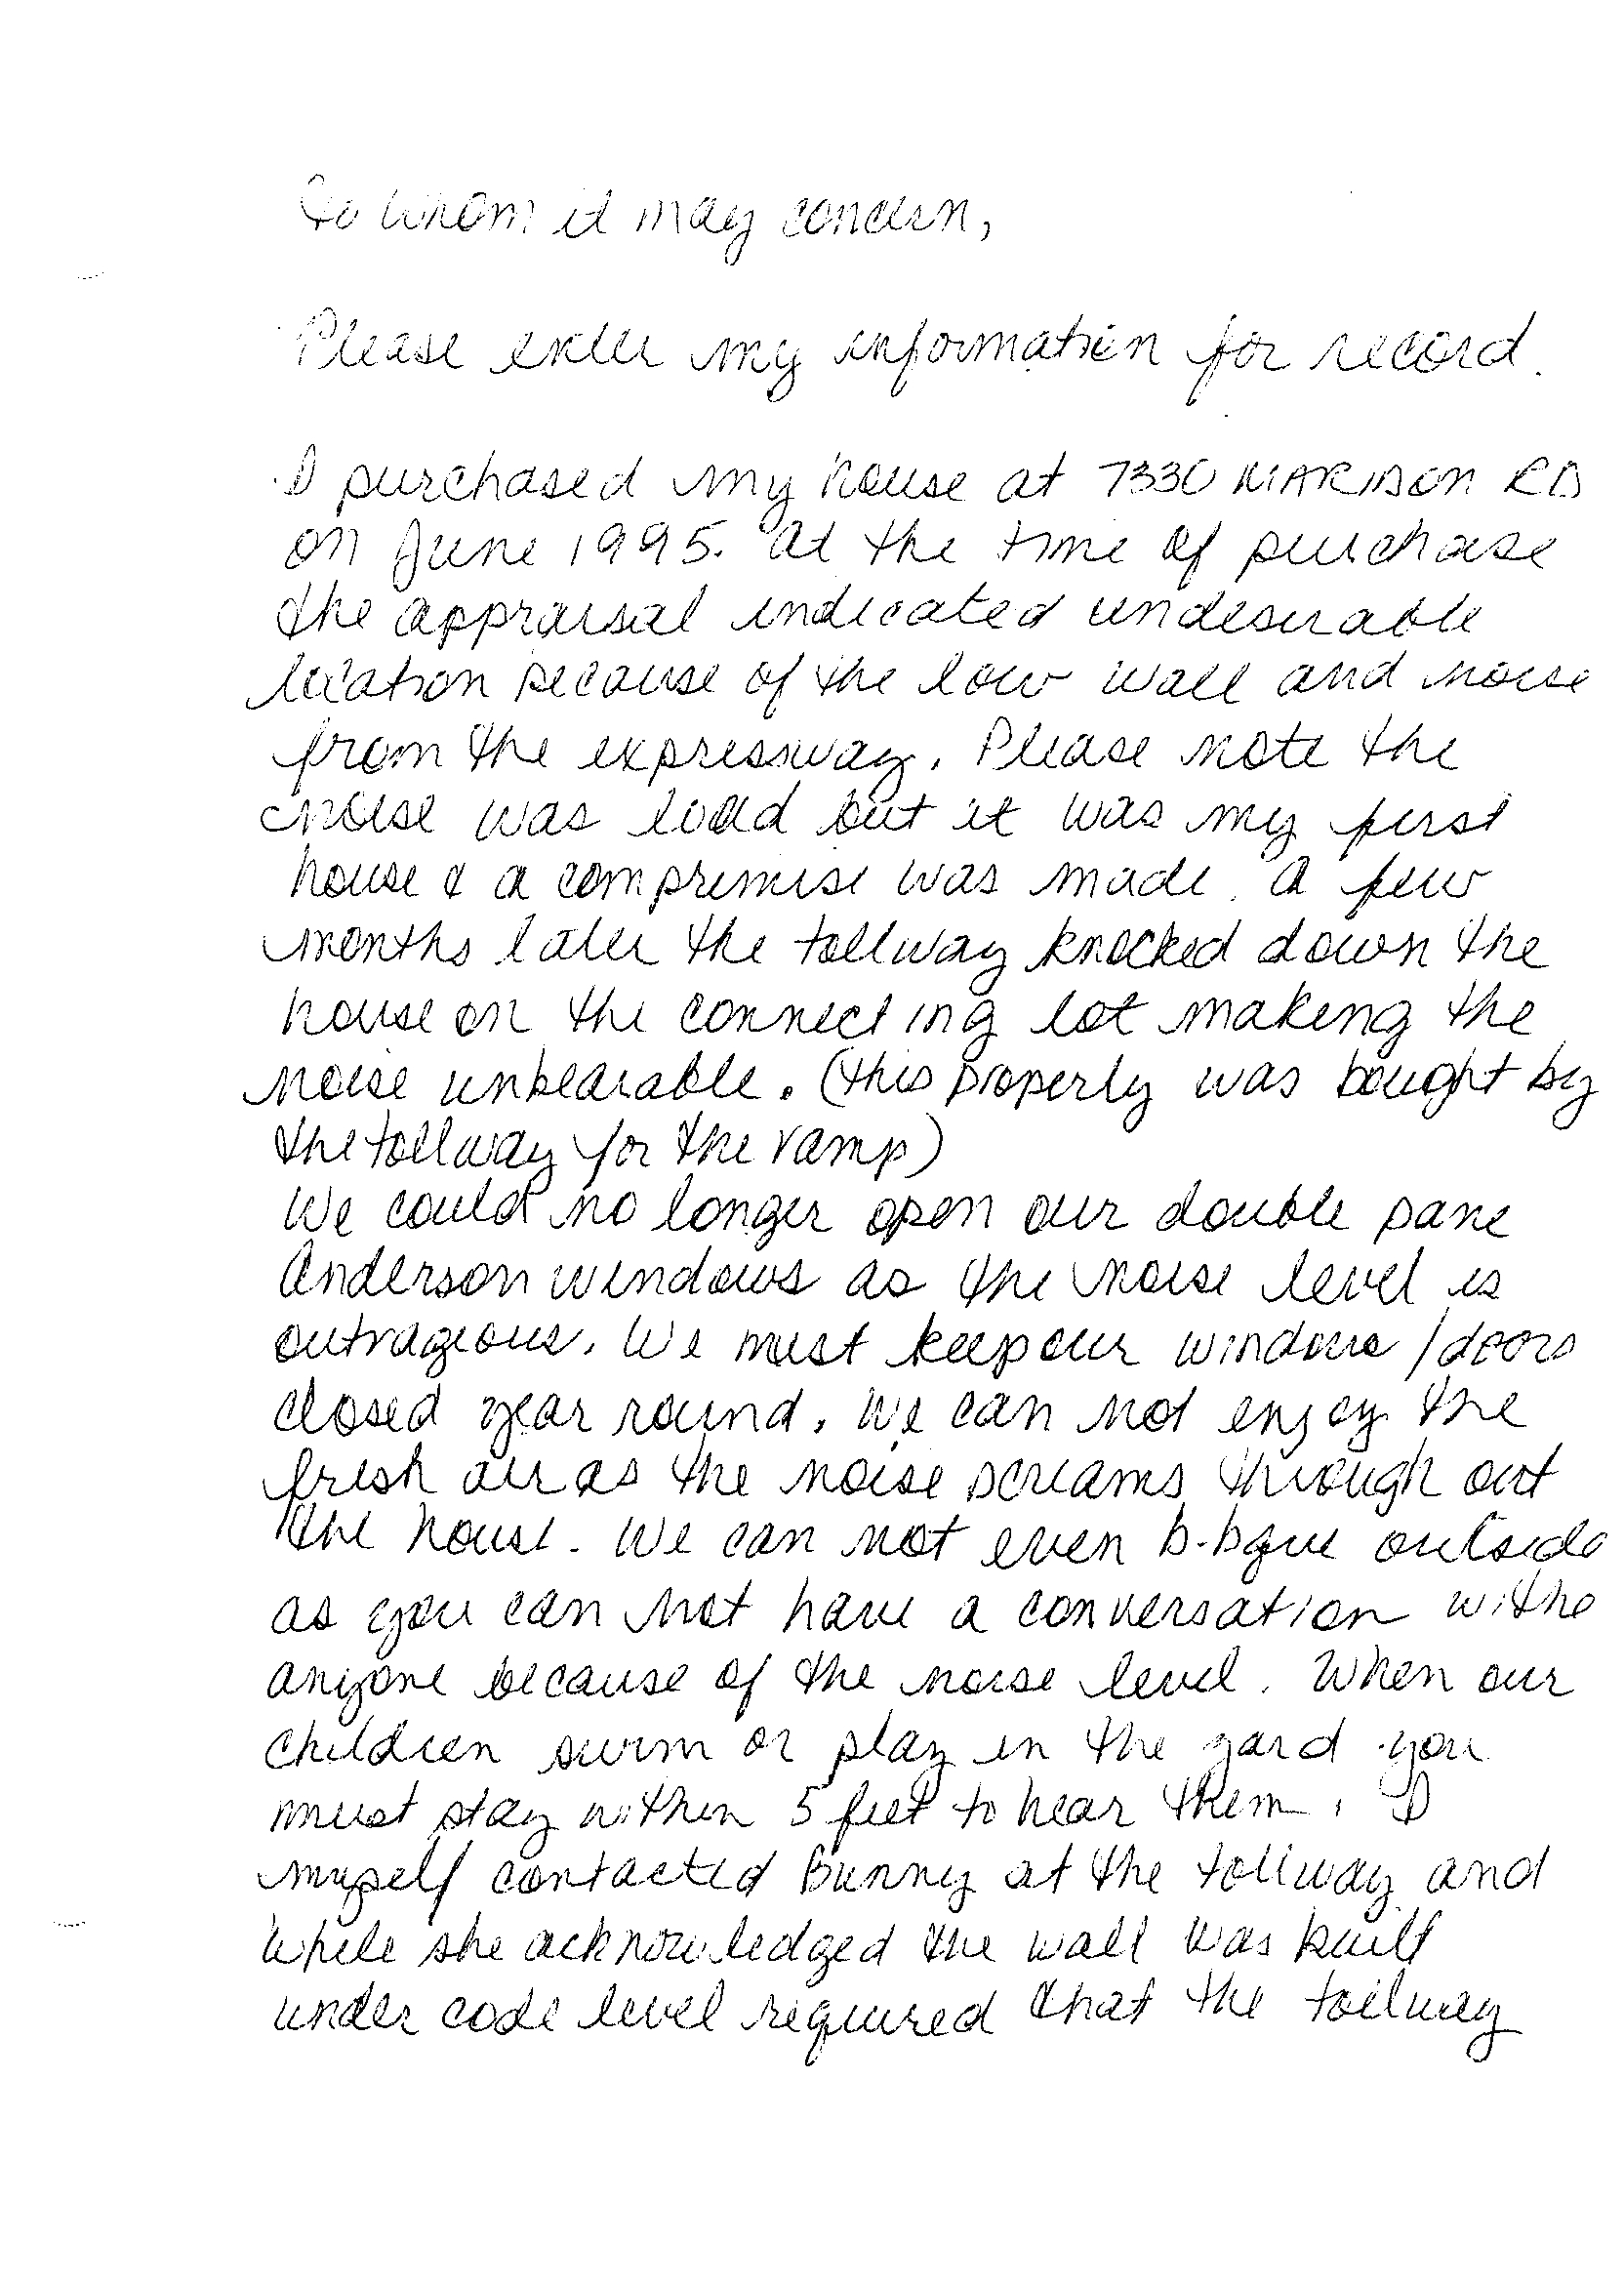 To whom it may concern,
Please enter my information for record.
I purchased my house at 7330 Maridon RD
on June 1995. At the time of purchase
the appraisal indicated undesirable
location because of the low wall and noise
from the expressway. Please note the
noise was loud but it was my first
house & a compromise was made. A few
months later the tollway knocked down the
house on the connecting lot making the
noise unbearable. (this property was bought by
the tollway for the ramp)
We could no longer open our double pane
Anderson windows as the noise level is
outrageous. We must keep our windows/doors
closed year round. We can not enjoy the
fresh air as the noise screams through out
the house. We can not even b-bque outside
as you can not have a conversation withe
anyone because of the noise level. When our
children swim or play in the yard you
must stay within 5 feet to hear them. I
myself contacted Bunny at the tollway and
while she acknowledged the wall was built
under code level required that the tollway